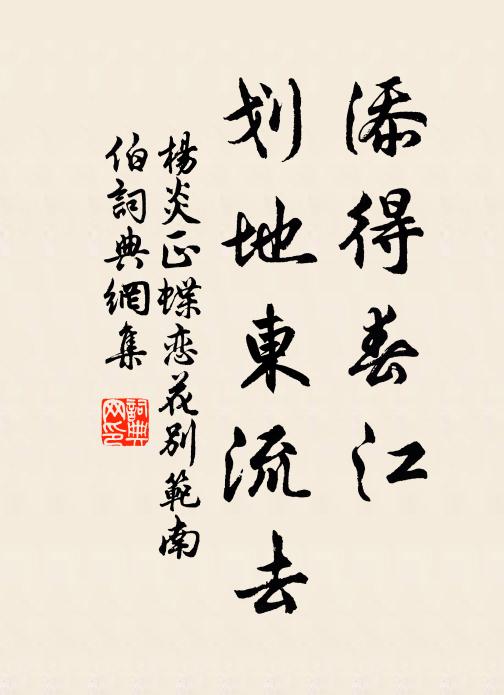 添得春江
划地東流去
楊炎正蝶恋花別範南
伯詞典網集
詞典
网印